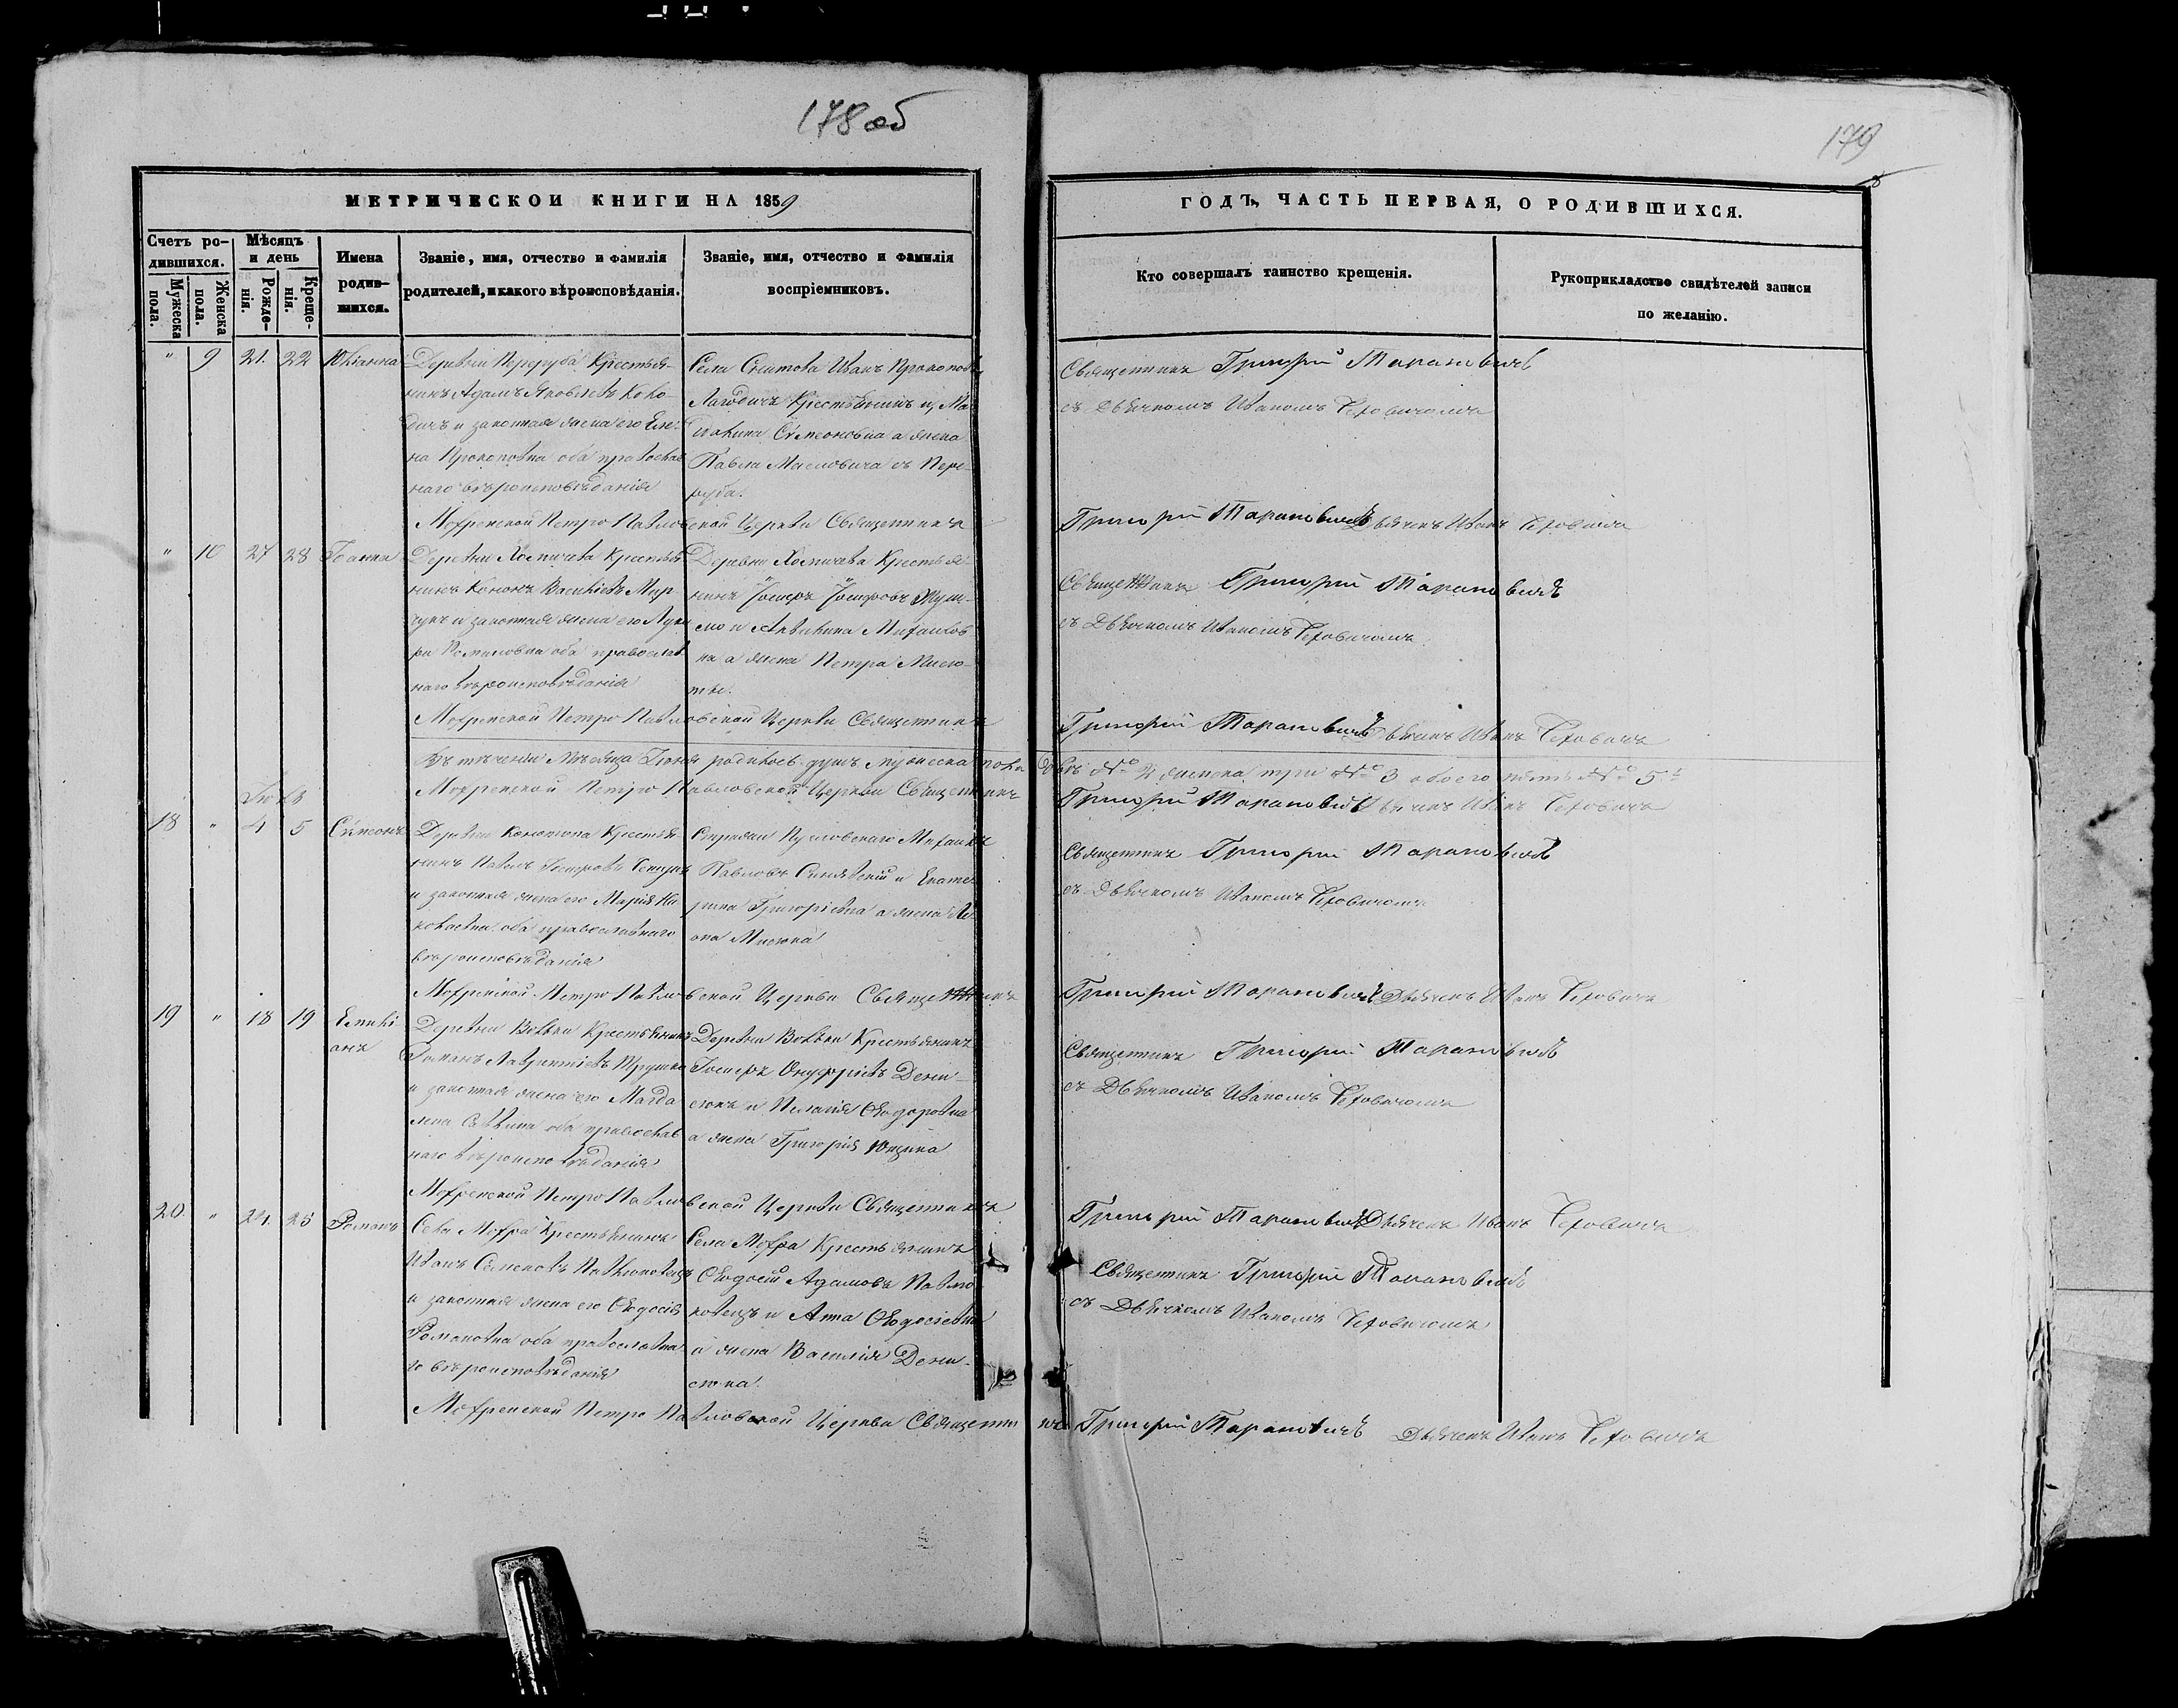 178 об
179
МЕТРИЧЕСКОЙ КНИГИ НА 1859
ГОДЪ, ЧАСТЬ ПЕРВАЯ, О РОДИВШИХСЯ.
Счетъ ро-
дившихся.
Мужеска
пола.
Женска
пола.
Мѣсяцъ
и день
Рожде-
нія.
Креще-
нія.
Имена
родив-
шихся.
Званіе, имя, отчество и фамилія
родителей, и какого вѣроисповѣданія.
Званіе, имя, отчество и фамилія
воспріемниковъ.
Кто совершалъ таинство крещенія.
Рукоприкладство свидѣтелей записи
по желанію.
" 9 21. 22 Юліанна
Деревни Переруба Крестья-
нинъ Адамъ Яковлевъ
и законная жена его Еле-
на Прокоповна оба православ
наго вѣроисповѣданія
Села Иванъ Прокоповъ
Крестьянинъ и
Сѵмеоновна а жена
Павла Масловича съ Пере-
руба.
Священникъ Григорій Тарановичъ
съ Дьячкомъ Иваномъ Чеховичомъ
Мохренской Петро Павловской Церкви Священникъ Григорій Тарановичъ Дьячекъ Иванъ Чеховичъ
" 10 27 28 Іоанна
Деревни Хомичева Крестья
нинъ Кононъ Васильевъ
и законная жена его
оба православ
наго вѣроисповѣданія
Деревни Хомичева Крестья-
нинъ Іосифъ Іосифовъ
и Акилина Михаилов
на а жена Петра Мисю-
ты.
Священникъ Григорій Тарановичъ
съ Дьячкомъ Иваномъ Чеховичомъ
Мохренской Петро Павловской Церкви Священникъ Григорій Тарановичъ Дьячекъ Иванъ Чеховичъ
Въ теченіи Мѣсяца Іюня родилось душъ мужеска пола двѣ № 2 женска три № 3 обоего пять № 5
Мохренской Петро Павловской Церкви Священникъ Григорій Тарановичъ Дьячекъ Иванъ Чеховичъ
Іюль
18 " 4 5 Сѵмеонъ
Деревни Крестья
нинъ Павелъ Петровъ
и законная жена его Марія
оба православнаго
вѣроисповѣданія
Михаилъ
Павловъ и Екате-
рина Григоріевна а жена
Мисюка
Священникъ Григорій Тарановичъ
съ Дьячкомъ Иваномъ Чеховичомъ
Мохренской Петро Павловской Церкви Священникъ Григорій Тарановичъ Дьячекъ Иванъ Чеховичъ
19 " 18 19 Емилі
анъ
Деревни Вольки Крестьянинъ
Романъ Лаврентіевъ
и законная жена его Магда
лена оба православ
наго вѣроисповѣданія
Деревни Вольки Крестьянинъ
Іосифъ Онуфріевъ Дени-
сюкъ и Пелагія Ѳеодоровна
а жена Григорія
Священникъ Григорій Тарановичъ
съ Дьячкомъ Иваномъ Чеховичомъ
Мохренской Петро Павловской Церкви Священникъ Григорій Тарановичъ Дьячекъ Иванъ Чеховичъ
20. " 24. 25 Романъ
Села Мохра Крестьянинъ
Иванъ Семеновъ Павлюковецъ
и законная жена его Ѳеодосія
Романовна оба православна
го вѣроисповѣданія
Села Мохра Крестьянинъ
Ѳеодосій Адамовъ Павлю
ковецъ и Анна Ѳеодосіевна
а жена Василія Дени-
сюка.
Священникъ Григорій Тарановичъ
съ Дьячкомъ Иваномъ Чеховичомъ
Мохренской Петро Павловской Церкви Священникъ Григорій Тарановичъ Дьячекъ Иванъ Чеховичъ